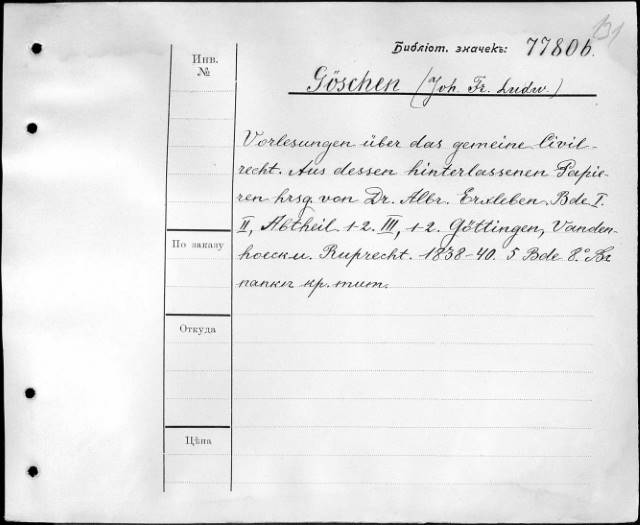 131
Библіот. значекъ: 77806.
Инв.
№
Göschen (Joh. Fr. Ludw.)
Vorlesungen über das gemeine Civil-
recht. Aus dessen hinterlassenen Papie-
ren hrsg. von Dr. Albr. Erxleben. Bde I.
II, Abtheil 1-2. III, 1-2. Göttingen, Vanden-
hoeck u. Ruprecht. 1838-40. 5 Bde 8.º Въ
папки кр. тит.
По заказу
Откуда
Цѣна